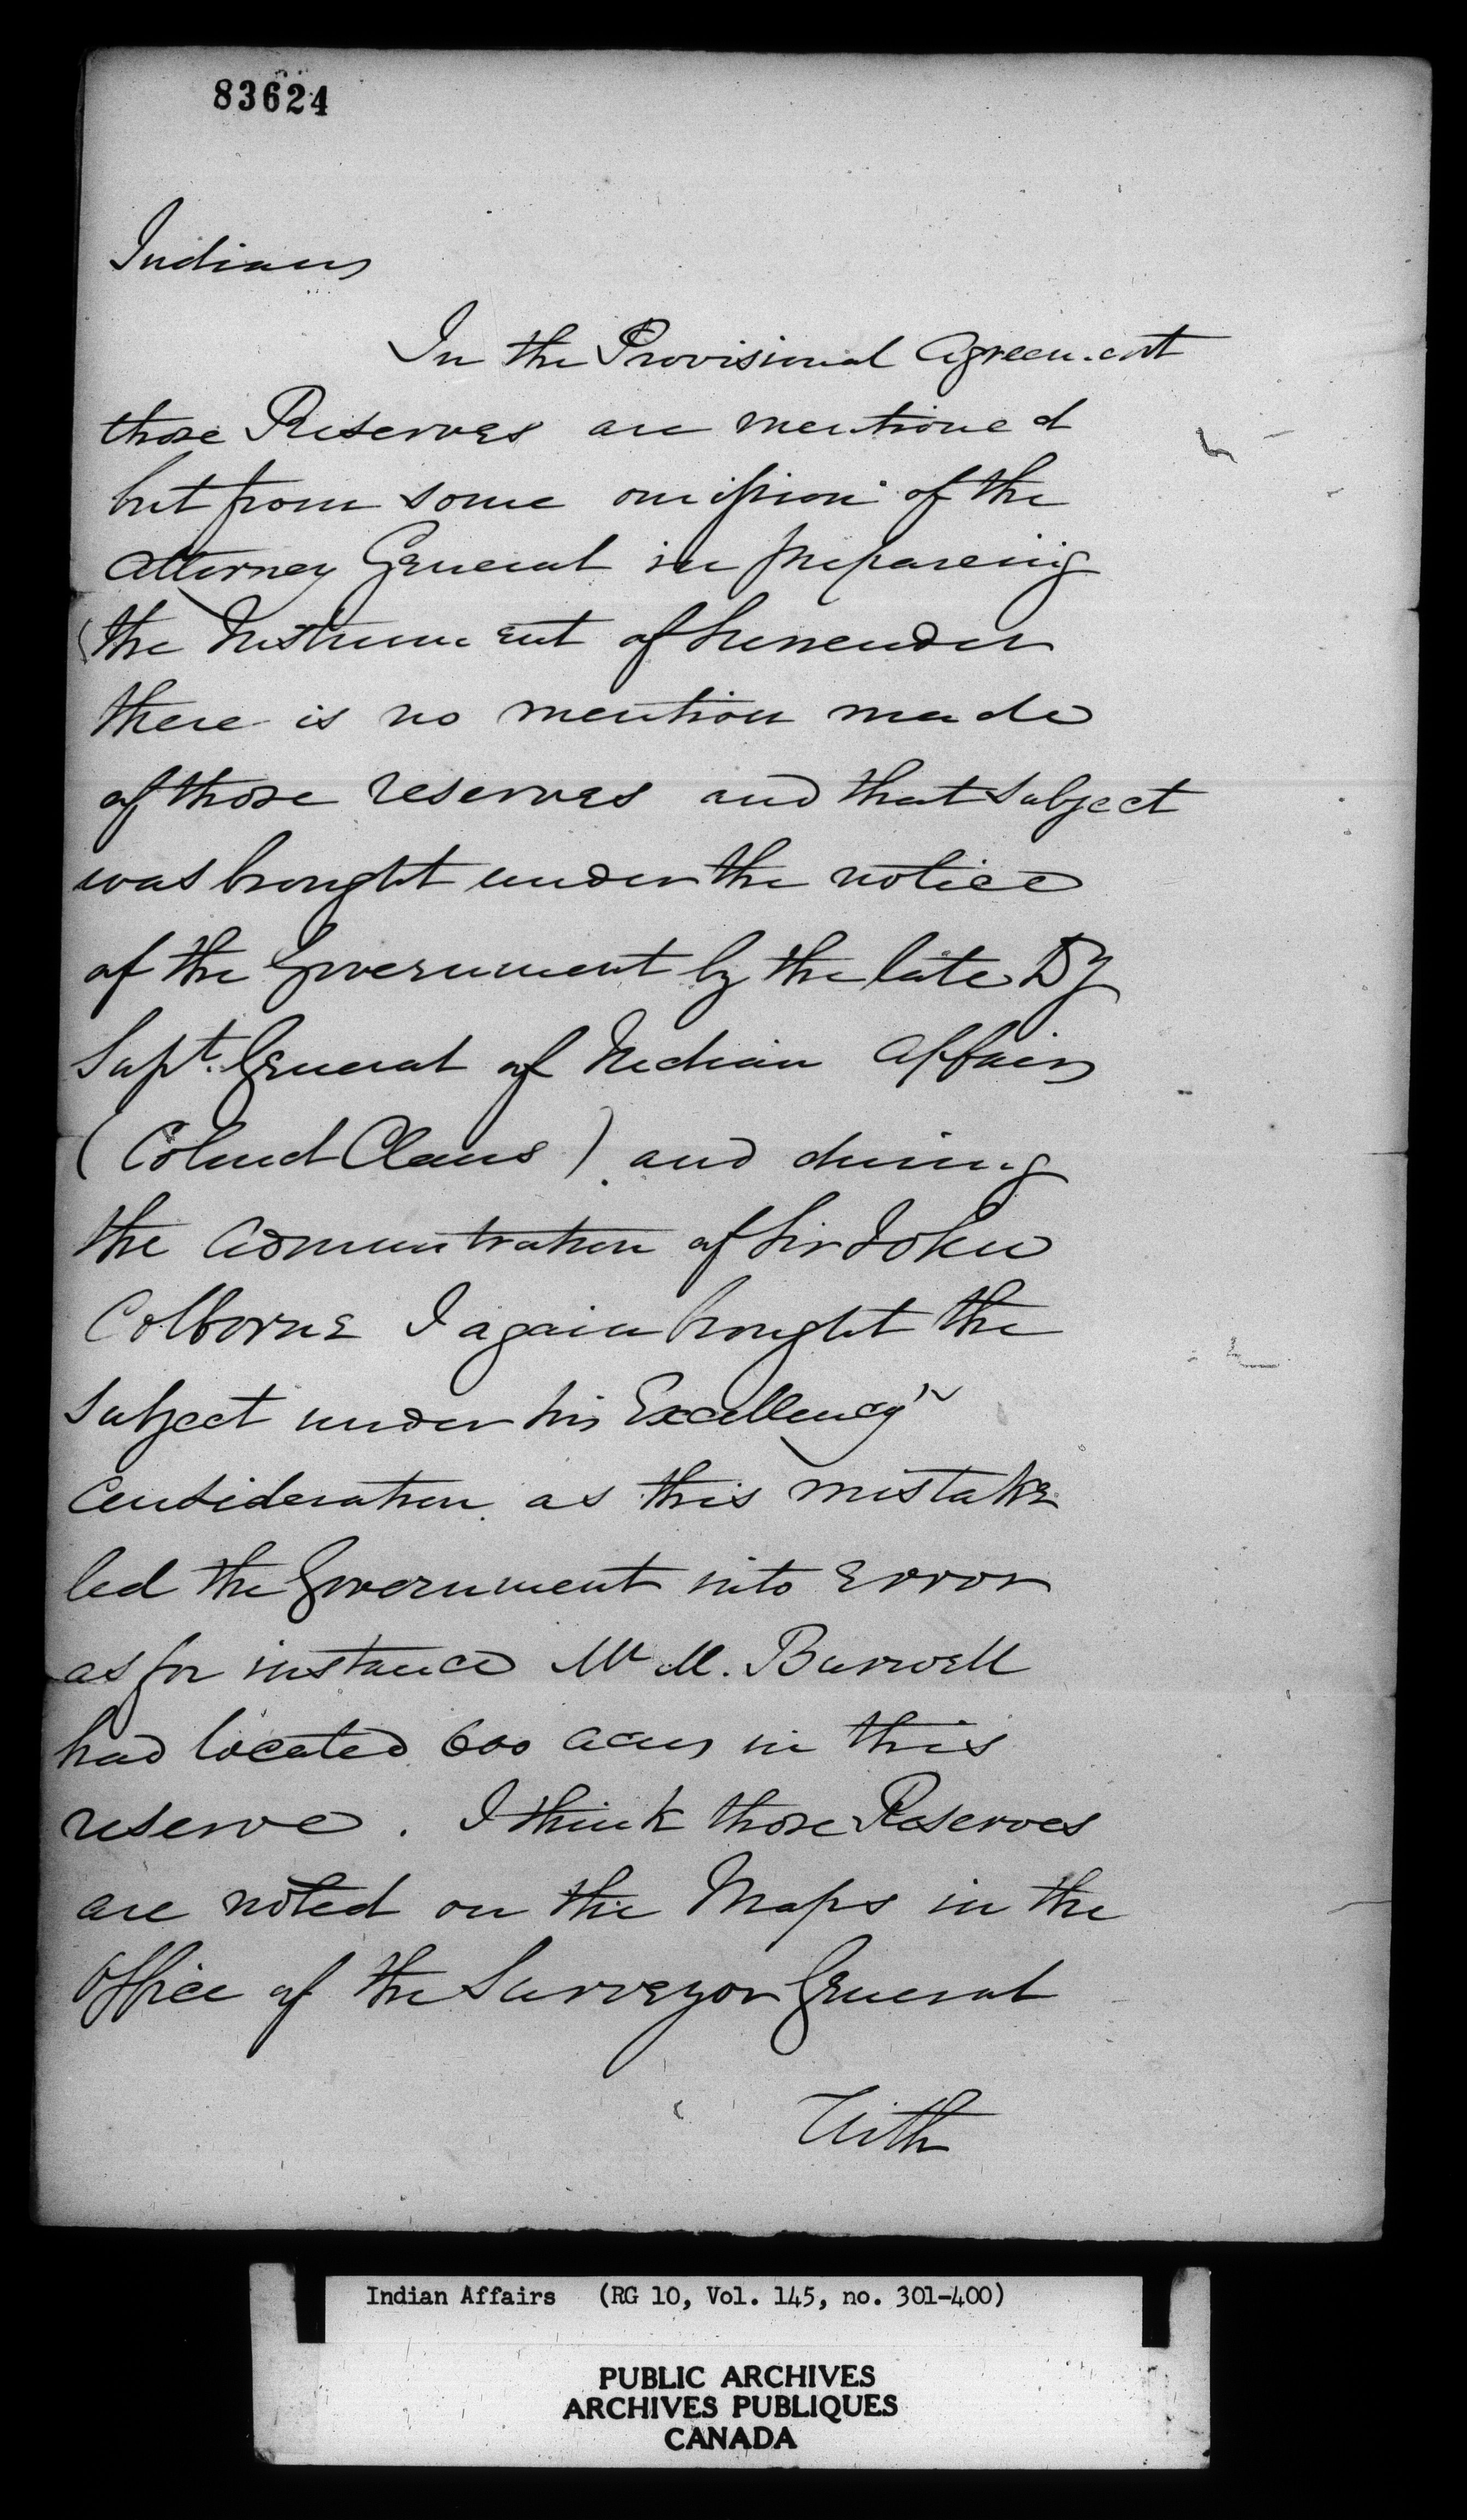 83624
Indians
In the Provisional Agreement
those Reserves are mentioned
but from some omission of the
Attorney General in prepareing
the Instrument of Surrender
there is no mention made
of those reserves and that subject
was brought under the notice
of the Government by the late Dy
Supt. General of Indian Affairs
(Colonel Claus) and during
the Administration of Sir John
Colborne I again brought the
subject under his Excellency's
consideration as this mistake
led the Government into error
as for instance Mr M. Burwell
had located 600 acres in this
reserve. I think those Reserves
are noted on the Maps in the
Office of the Surveyor General
With
Indian Affairs (RG 10, Vol. 145, no. 301-400)
PUBLIC ARCHIVES
ARCHIVES PUBLIQUES
CANADA